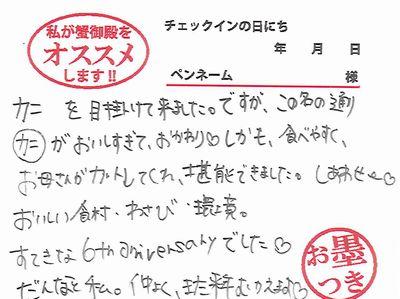 私が蟹御殿を
オススメ
します!!
チェックインの日にち
年 月 日
ペンネーム 様
カニ を目掛けて来ました。ですが、この名の通り
カニ がおいしすぎて、おかわり♡しかも、食べやすく、
お母さんがカットしてくれ、堪能できました。しあわせ〜♡
おいしい食材・わさび・環境。
すてきな6th aniversaryでした♡
だんなと私。仲よく、また来年むかえます♡
お墨
つき